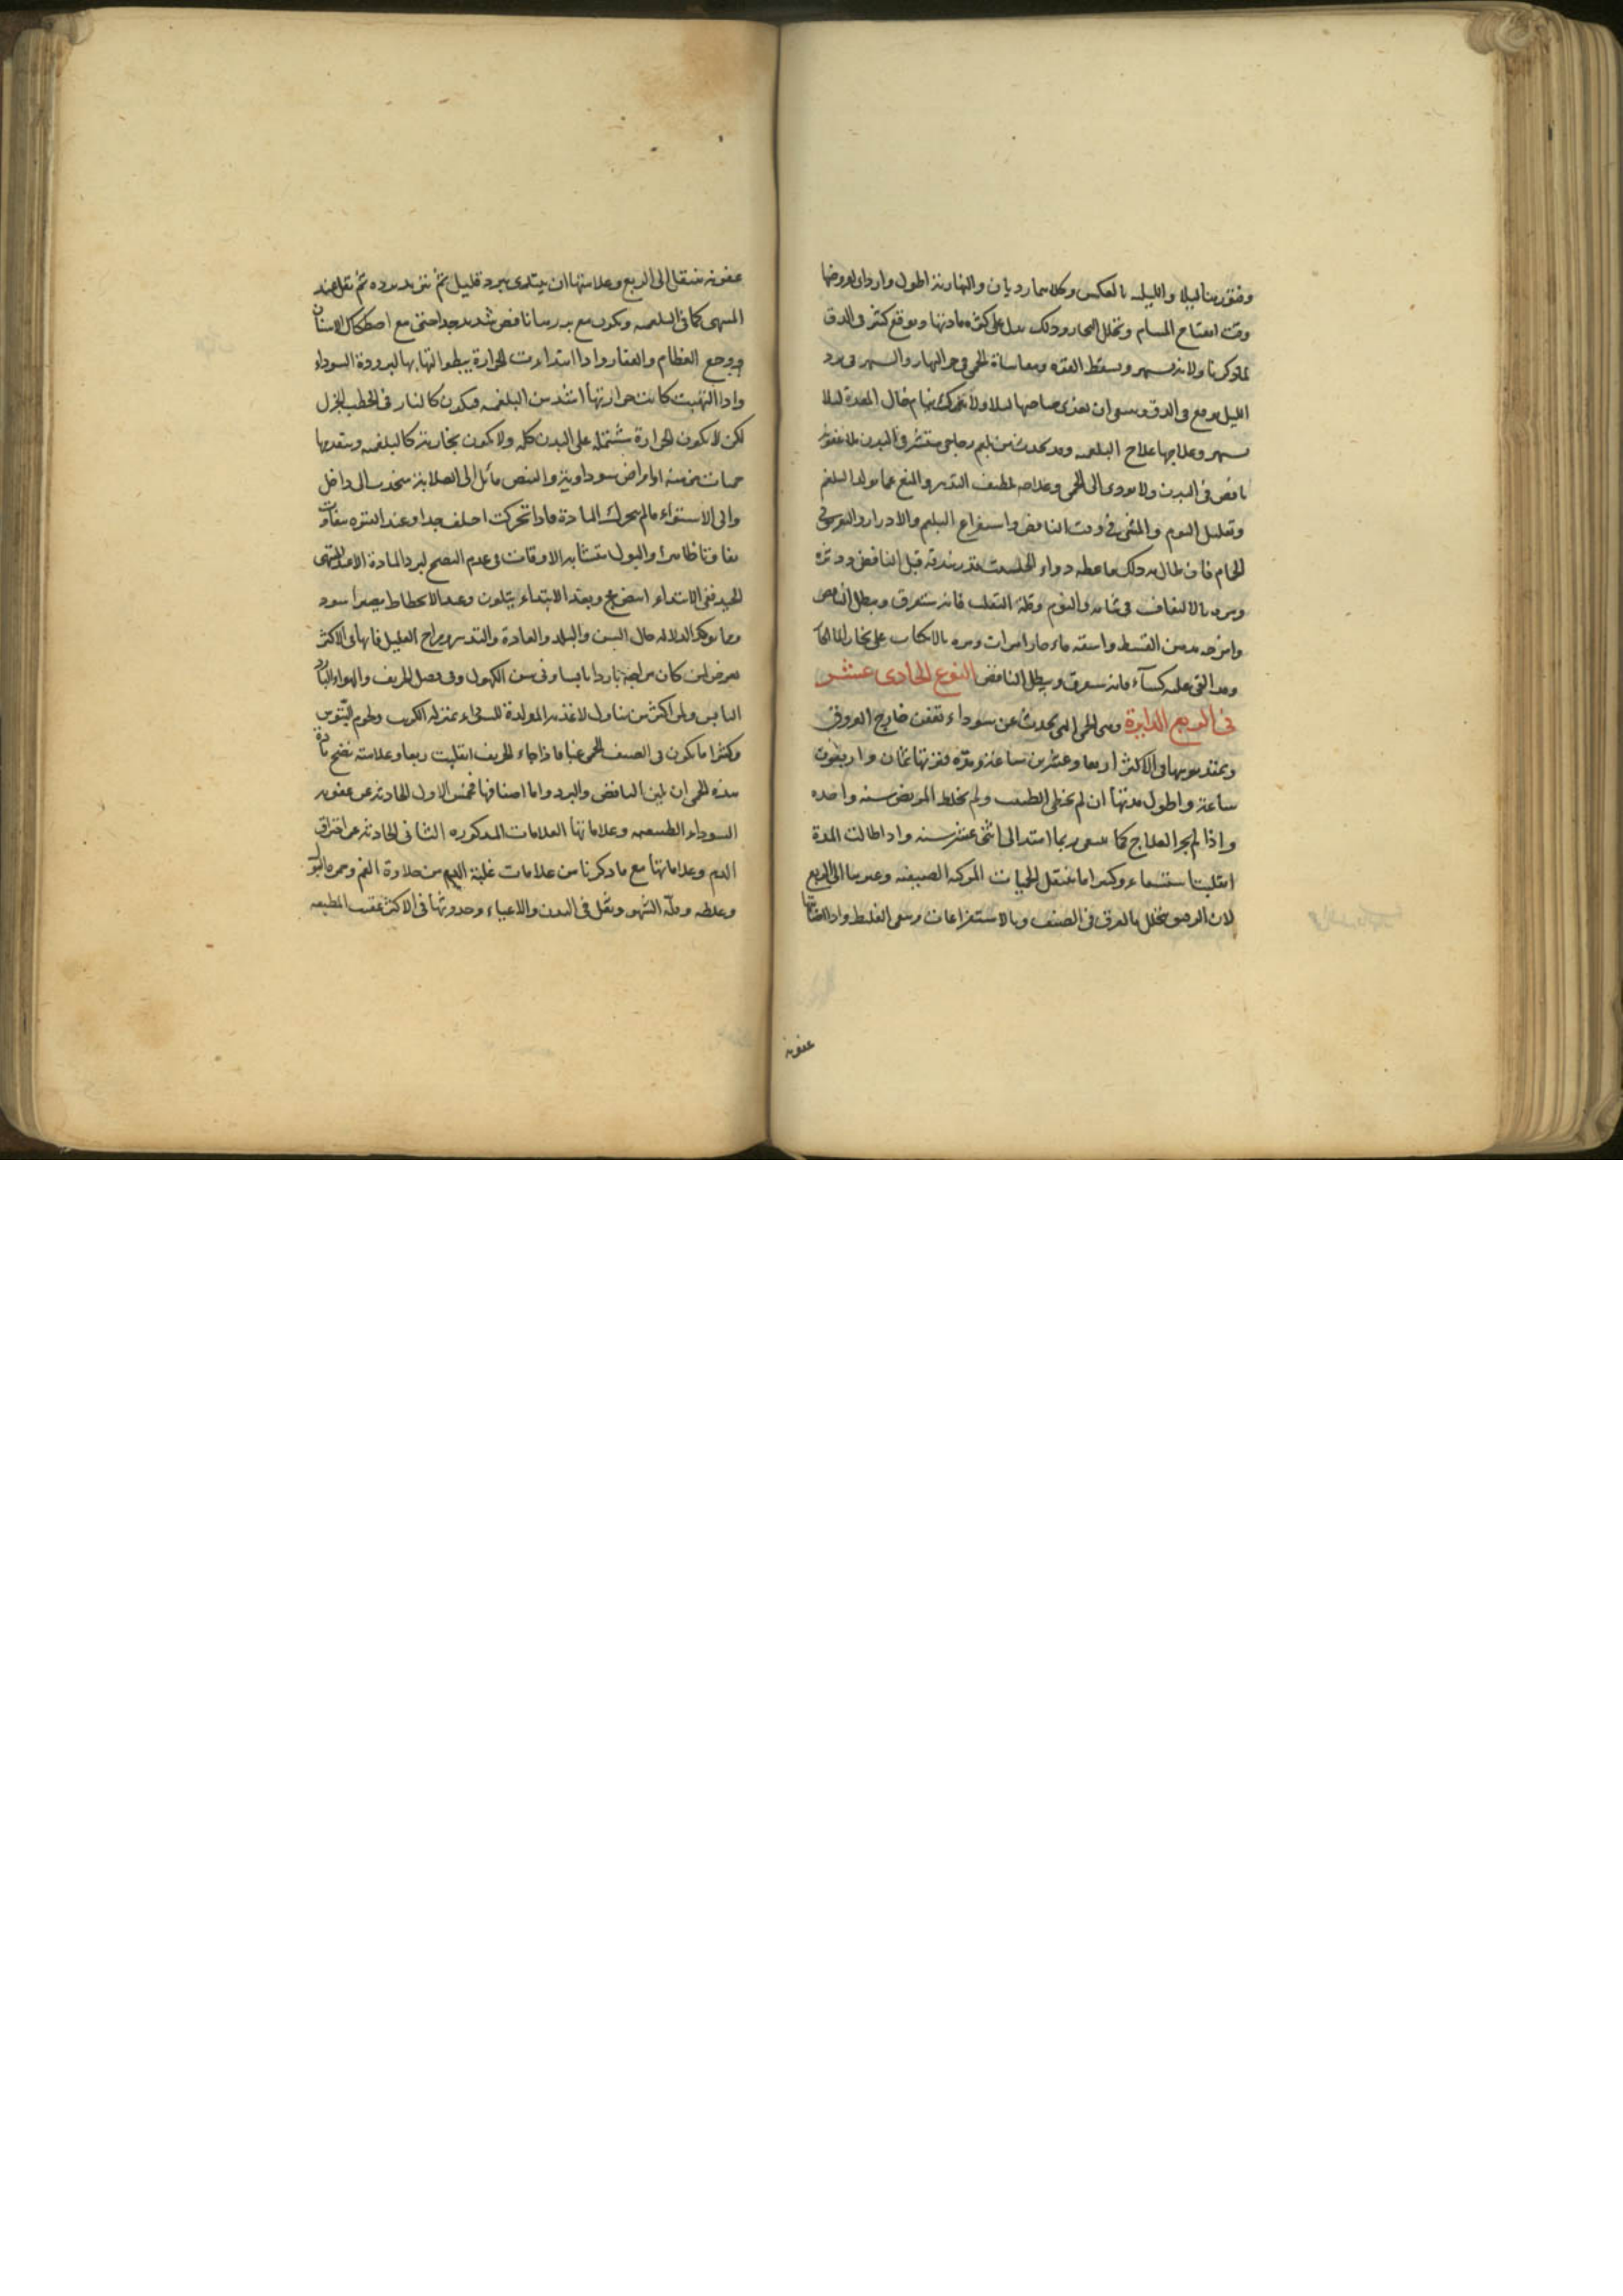 وفتورها ليلا والليلية بالعكس وكلاهما رديان والنهارية اطول واردا لعروضها
وقت انفتاح المسام وتحلل البخار وذلك يدل على كثرة مادتها ويوقع كثيرا في الدق
لما ذكرنا ولانه يسهر ويسقط القوة ومقاساة الحمى في حر النهار والسهر في برد
الليل يوقع في الدق وينبغي ان يغذى صاحبها ليلا ولا يترك ينام خالي المعدة لئلا
يسهر وعلاجها علاج البلغمية وقد يحدث من بلغم زجاجي منتشر في البدن بلا عفونة
نافض في البدن ولا يودي الى الحمى وعلاجه لطيف التدبير والمنع مما يولد البلغم
وتقليل النوم والمشي في وقت النافض واستفراغ البلغم والادرار والتعريق في
الحمام فان طال به ذلك فاعطه دواء الحلتيت قدر بندقة قبل النافض ودثره
ومره بالالتفاف في ثيابه والنوم وقلة التقلب فانه يتعرق ويبطل النافض
وامرخ بدنه من القسط واسقه ماء حارا مرات ومره بالانكباب على بخار الماء الحار
وقد القي عليه كساء فانه يتعرق ويبطل النافض النوع الحادى عشر
في الربع الدايرة وهي الحمى التي تحدث عن سوداء تعفن خارج العروق
ويمتد نوبتها في الاكثر اربعا وعشرين ساعة ومدة فترتها ثمان واربعون
ساعة واطول مدتها ان لم يخطي الطبيب ولم يخلط المريض سنة واحدة
واذا لم يجر العلاج كما ينبغي ربما امتد الى اثنى عشر سنة واذا طالت المدة
انقلبت استسقاء وكثيرا ما تنتقل الحميات المركبة الصيفية وغيرها الى الربع
لان الرقيق يتحلل بالعرق في الصيف وبالاستفراغات ويبقى الغليظ واذا
عفونة
عفونة تنتقل الى الربع وعلامتها ان يبتدى ببرد قليل ثم يتزيد برده ثم يقل عند
المنتهى كما في البلغمية ويكون مع برد سنا نافض شديد جدا حتى مع اصطكاك الاسنان
ووجع العظام والفقار واذا ابتدات الحرارة يبطوا التهابها لبرودة السوداء
واذا التهبت كانت حرارتها اشد من البلغمية فيكون كالنار في الحطب الجزل
لكن لا يكون الحرارة مشتملة على البدن كله ولا يكون بخارية كالبلغمية ويتقدمها
حميات مزمنة او امراض سوداوية والنبض مائل الى الصلابة منجذب الى داخل
والى الاستواء ما لم يتحرك المادة فاذا تحركت اختلف جدا وعند الفترة يتفاوت
تفاوتا ظاهرا والبول متشابه الاوقات في عدم النضج لبرد المادة الا عند المنتهى
الجيد ففي الابتداء ابيض فج وبعد الابتداء يتلون وعند الانحطاط يصير اسود
ومما يوكد الدلالة حال السن والبلد والعادة والتدبير ومزاج العليل فانها في الاكثر
تعرض لمن كان مزاجه باردا يابسا وفي سن الكهول وفي فصل الخريف والهواء البارد
اليابس ولمن اكثر من تناول الاغذية المولدة للسوداء بمنزلة الكرنب ولحوم التيوس
وكثيرا ما يكون في الصيف الحمى غبا فاذا جاء الخريف انقلبت ربعا وعلامة نضج مادة
هذه الحمى ان يلين النافض والبرد واما اصنافها فخمس الاول الحادثة عن عفونة
السوداء الطبيعية وعلاماتها العلامات المذكورة الثاني الحادثة عن احتراق
الدم وعلاماتها مع ما ذكرنا من علامات غلبة الدم من حلاوة الفم وحمرة البول
وغلظه وقلة الشهوة وثقل في البدن والاعياء وحدوثها في الاكثر عقيب المطبقة